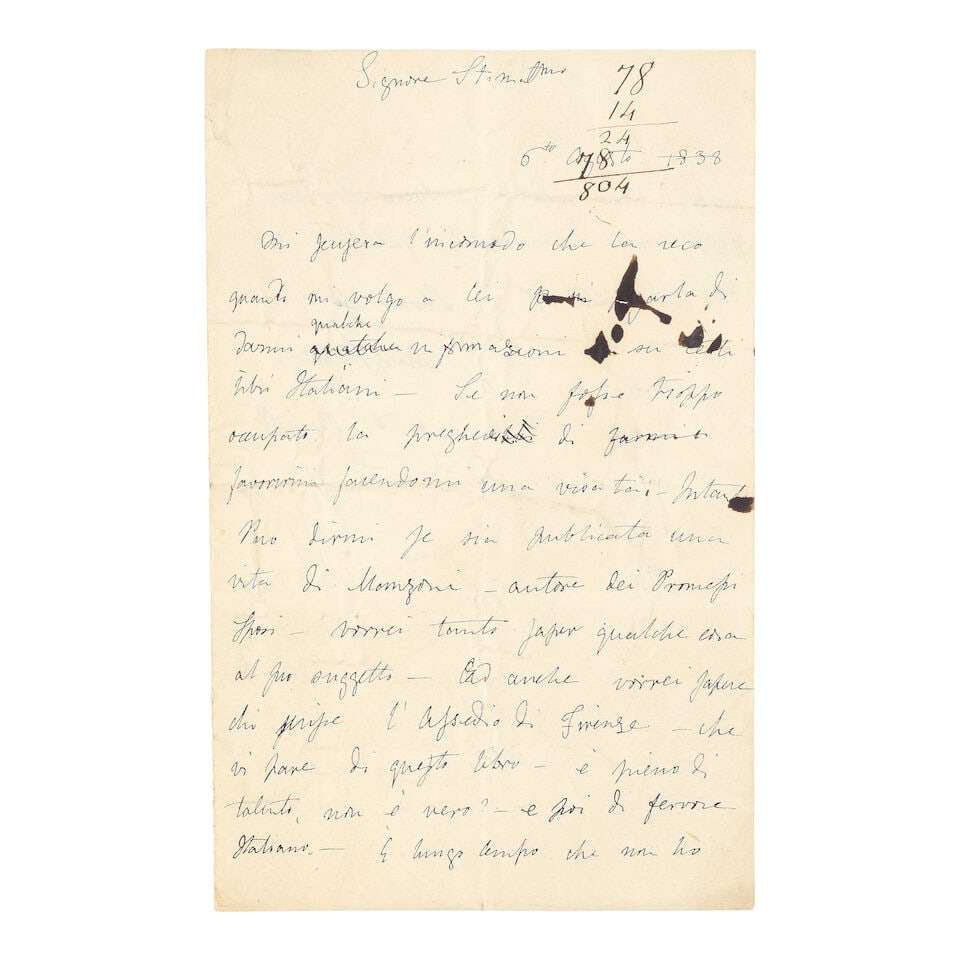 Signore Stimatmo
78
14
24
78
804
6to Agosto 1838
Mi scusera l'incomodo che la reco
quando mi volgo a lei di
qualche
darmi informazioni su certi
libri Italiani — Se non fosse troppo
occupato la di farmi
favorirmi facendomi una visata. — Intanto
Puo dirmi se sia publicata una
vita di Manzoni — autore dei Promessi
Sposi — vorrei tanto saper qualche cosa
al suo suggetto — Ed anche vorrei sapere
chi scrisse l'Assedio di Firenze — che
vi pare di questo libro — è pieno di
talento, non è vero? — e poi di fervore
Italiano. — È lungo tempo che non ho